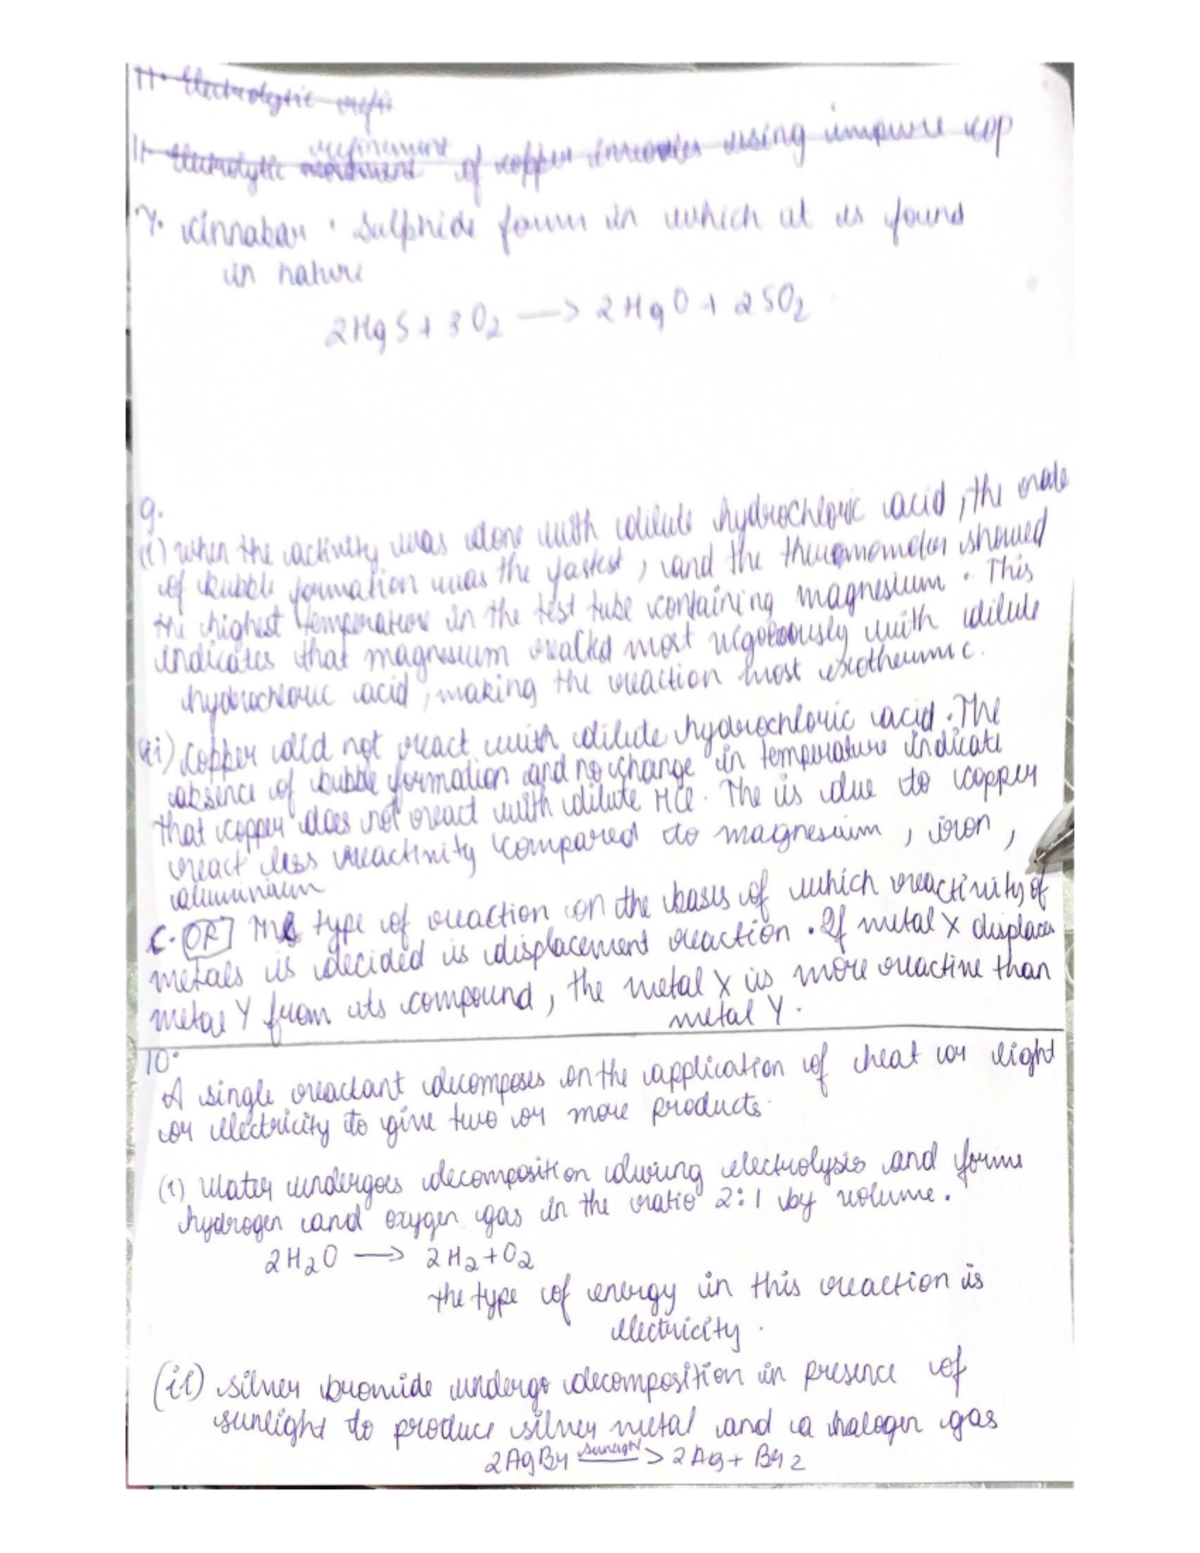 11. Electrolytic refi
11. Electrolytic refinement of copper involves using impure cop
7. Cinnabar : Sulphide form in which it is found
in nature
2HgS + 3O₂ ⟶ 2HgO + 2SO₂
9.
(i) when the activity was done with dilute hydrochloric acid, the rate
of bubble formation was the fastest, and the thermometer showed
the highest temperature in the test tube containing magnesium. This
indicates that magnesium reacted most vigorously with dilute
hydrochloric acid, making the reaction most exothermic.
(ii) Copper did not react with dilute hydrochloric acid. The
absence of bubble formation and no change in temperature indicate
that copper does not react with dilute HCl. The is due to copper
react less reactivity compared to magnesium, iron,
aluminium
C. OR] The type of reaction on the basis of which reactivity of
metals is decided is displacement reaction. If metal X displaces
metal Y from its compound, the metal X is more reactive than
metal Y.
10.
A single reactant decomposes on the application of heat or light
or electricity to give two or more products.
(i) Water undergoes decomposition during electrolysis and forms
hydrogen and oxygen gas in the ratio 2:1 by volume.
2H₂O ⟶ 2H₂ + O₂
the type of energy in this reaction is
electricity.
(ii) silver bromide undergo decomposition in presence of
sunlight to produce silver metal and a halogen gas
2AgBr sunlight> 2Ag + Br₂